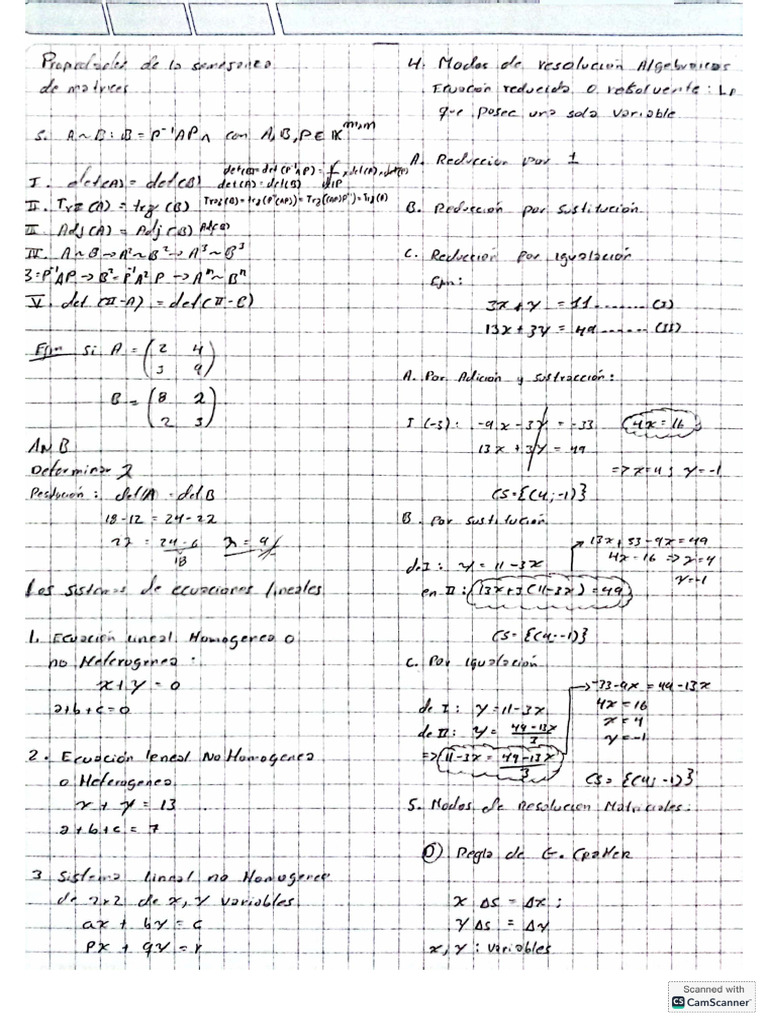 Propiedades de la semejanza
de matrices
S. A~B : B = P⁻¹AP ∧ con A, B, P ∈ K^m,m
I. det(A) = det(B)
det(A) = det(B)
II. Trz(A) = trz(B) Trz(B) = trz(P⁻¹(AP)) = Trz((AP)P⁻¹) = Trz(A)
II Adj(A) = Adj(B)
III. A~B → A²~B² → A³~B³
B = P⁻¹AP → B² = P⁻¹A²P → Aⁿ~Bⁿ
V. det(II-A) = det(II-B)
Ejm Si A = (2 4
3 9)
B = (8 2
2 3)
A~B
Determinar
Resolución : det A = det B
18-12 = 24-22
22 = 24-6
18
Los sistemas de ecuaciones lineales
1. Ecuación lineal Homogenea o
no Heterogenea :
x+y = 0
a+b+c = 0
2. Ecuación leneal No Homogenea
o Heterogenea
x + y = 13
a+b+c = 7
3 Sistema lineal no Homogeneo
de 2x2 de x, y variables
ax + by = c
px + qy = r
4. Modos de resolucion Algebraicos
Ecuación reducida o resolvente : La
que posee una sola variable
A. Reduccion por 1
B. Reducción por sustitución
C. Reducción por igualación
Ejm:
3x+y = 11 ....... (I)
13x+3y = 49 ...... (II)
A. Por Adición y sustracción :
I (-3) : -9x-3y = -33 4x = 16
13x+3y = 49
=> x=4 ; y=-1
CS={(4;-1)}
B. Por sustitución
13x+33-9x=49
de I : y = 11-3x 4x-16 => x=4
y=-1
en II : 13x+3(11-3x) = 49
CS={(4;-1)}
C. Por igualación
-33-9x = 49-13x
de I : y=11-3x 4x=16
de II : y = 49-13x / 3 x=4
y=-1
=> 11-3x = 49-13x / 3
CS={(4;-1)}
5. Modos de Resolucion Matriciales :
Regla de G. Cramer
x Δs = Δx ;
y Δs = Δy
x, y : variables
Scanned with
CS CamScanner